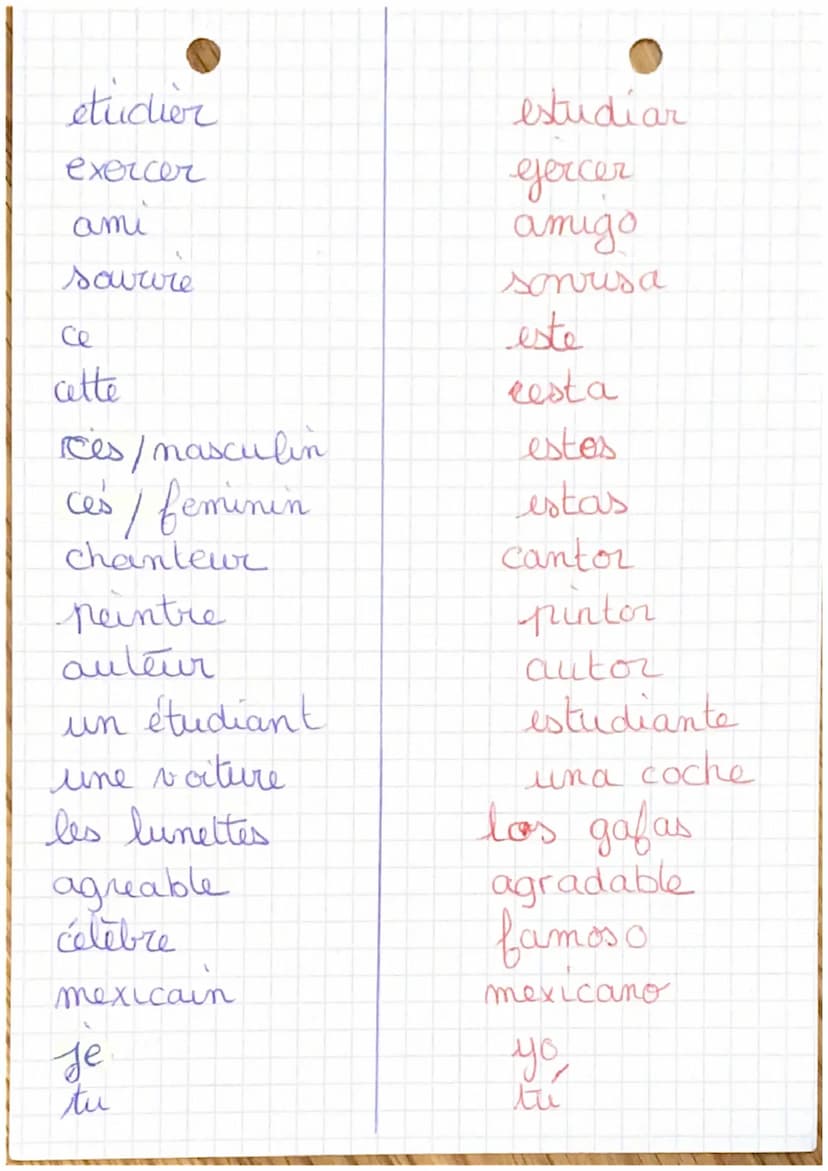 etudier estudiar
exercer ejercer
ami amigo
sourire sonrisa
ce este
cette esta
ces / masculin estos
ces / feminin estas
chanteur cantor
peintre pintor
auteur autor
un étudiant estudiante
une voiture una coche
les lunettes los gafas
agreable agradable
célèbre famoso
mexicain mexicano
je yo
tu tú